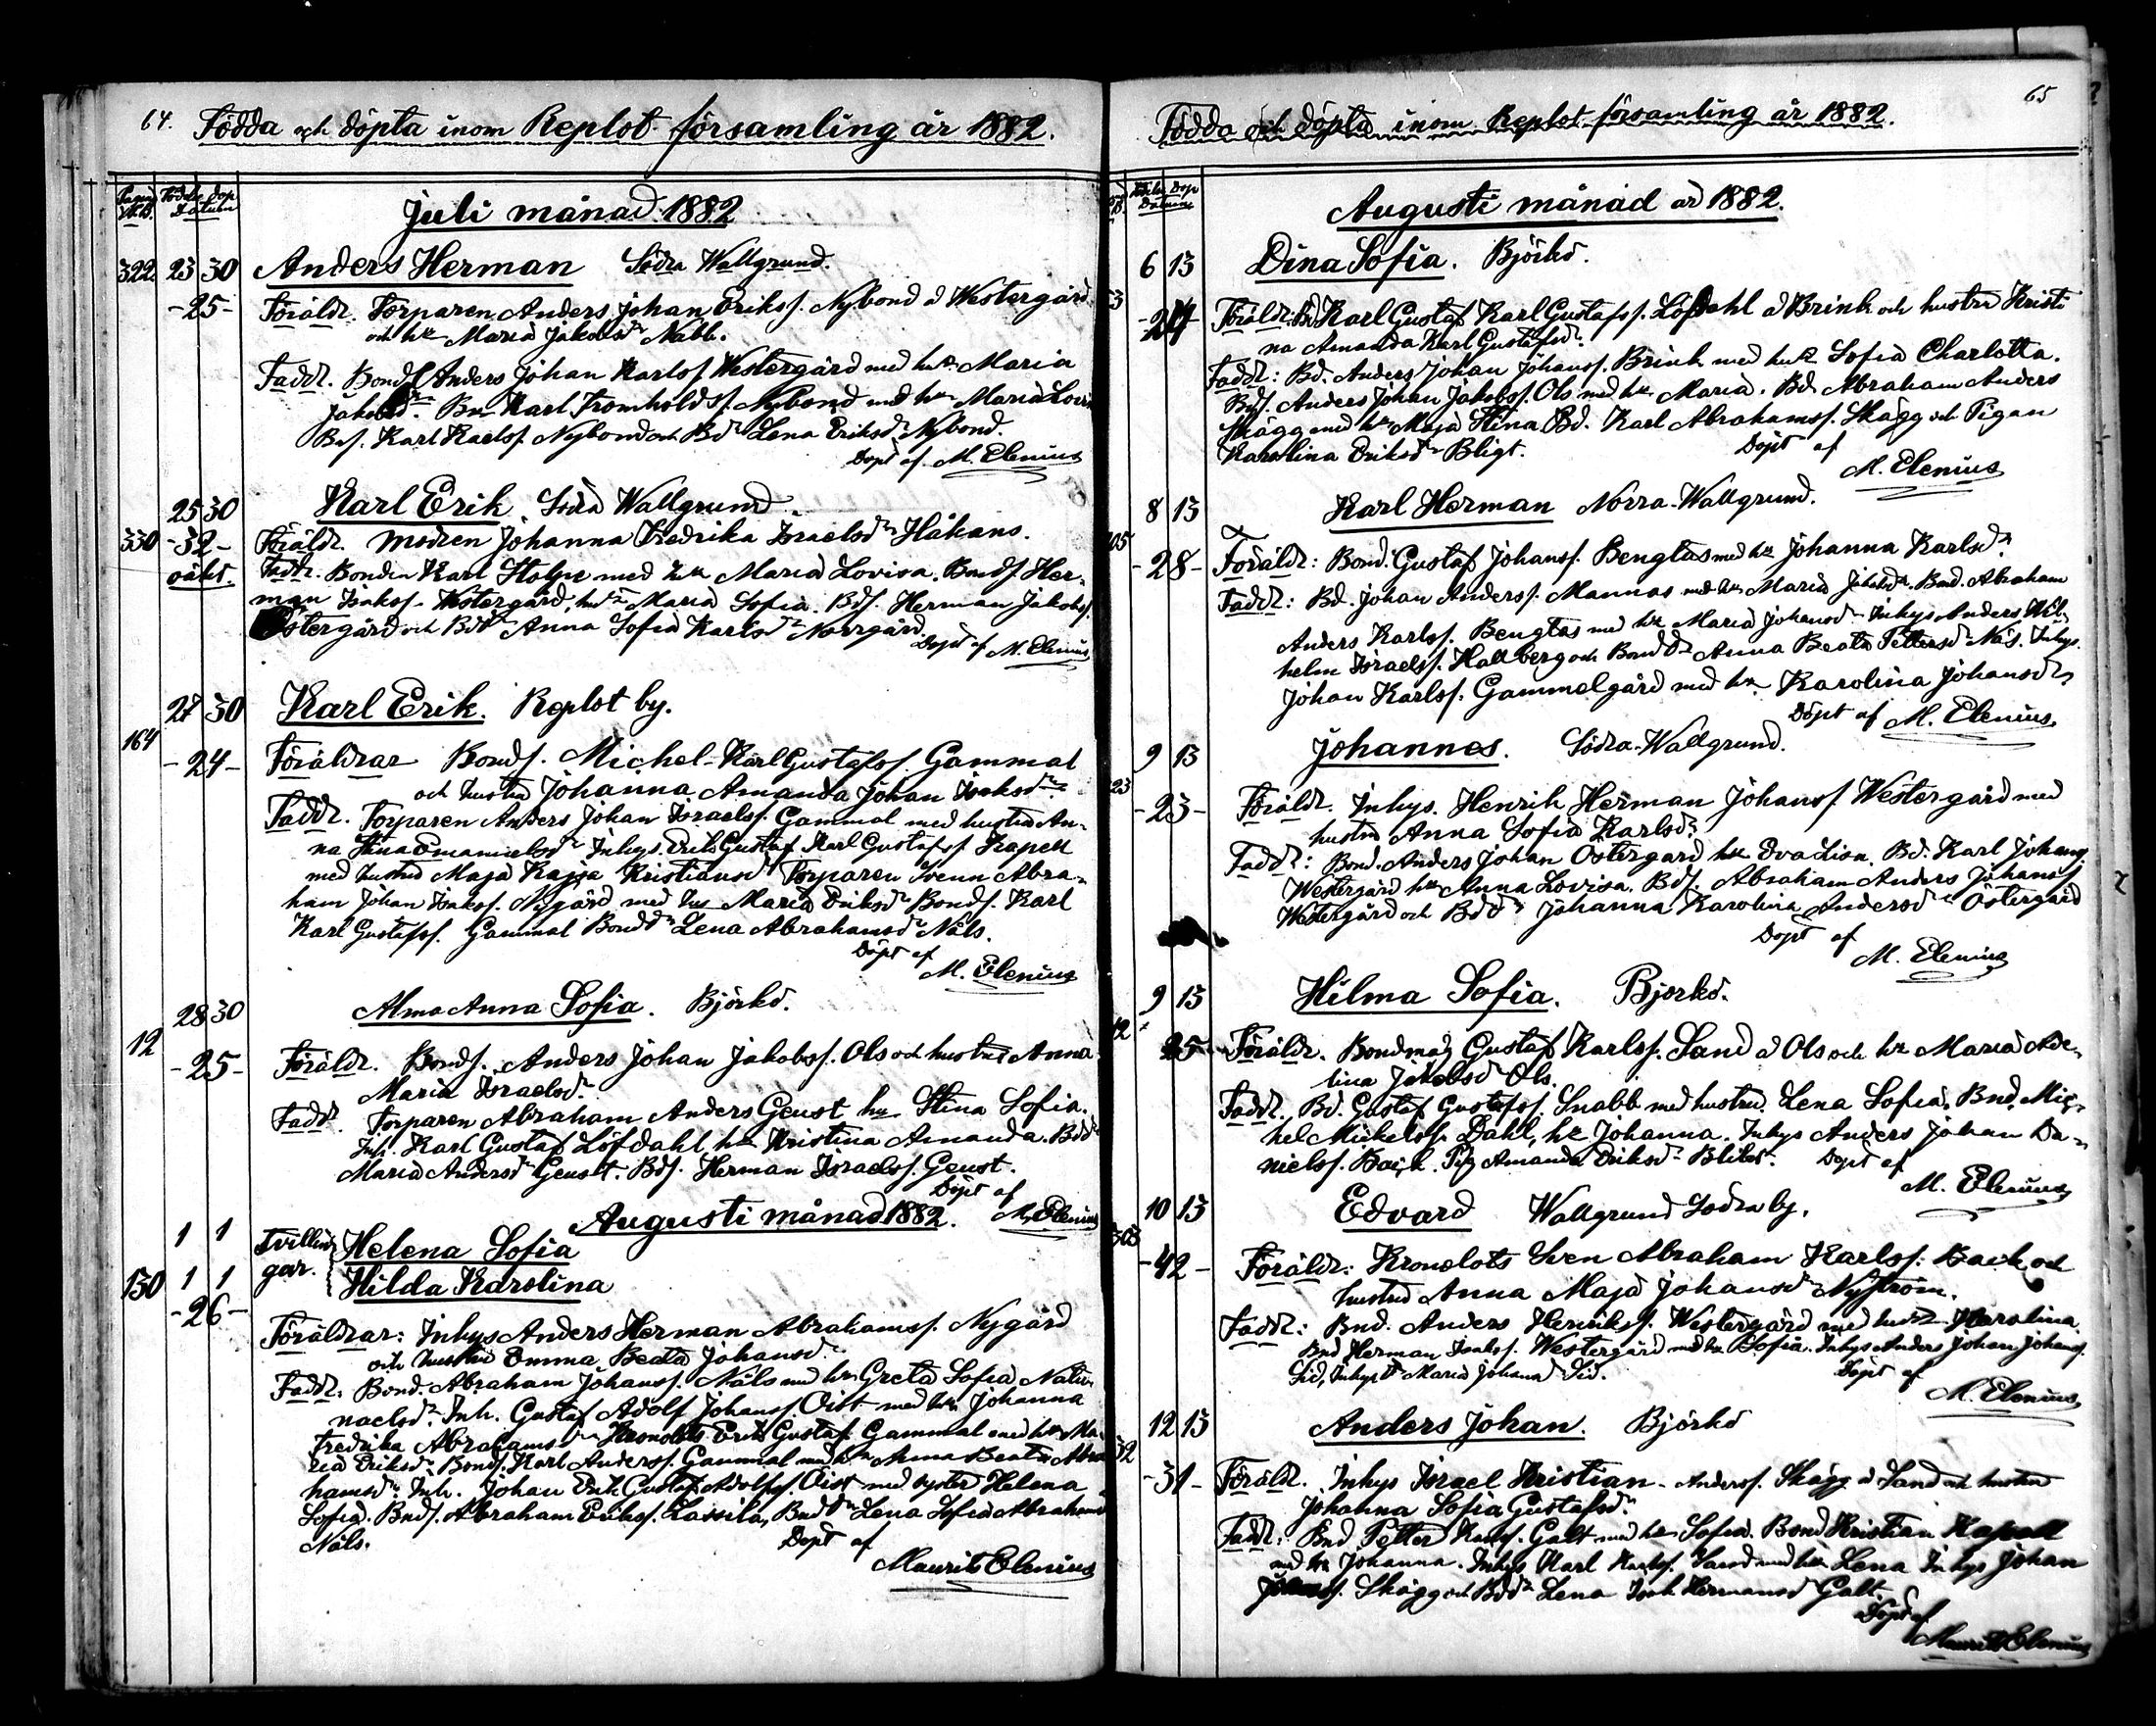 64. Födda och döpta inom Replot församling år 1882.
Pagin. K.B. Födelse Dop Datum
Juli månad 1882
322 23 30 Anders Herman Södra Wallgrund.
-25- Föräldr. Torparen Anders Johan Erikss. Nybond å Westergård
och h:u Maria Jakobsd:r Nabb.
Faddr. Bonds. Anders Johan Karlss Westergård med hu. Maria
Jakobsd:r Karl Tromholdss. Nybond med h:u Maria Lovisa
Bds. Karl Karlss. Nybond och Bdr Lena Eriksd:r Nybond.
Döpt af. M. Elenius
25 30 Karl Erik. Södra Wallgrund.
330 -32- Föräldr. modren Johanna Fredrika Israelsd:r Håkans.
oäkt. Faddr. Bonden Karl Stolpe med hu Maria Lovisa. Bonds. Her-
man Isakss. Westergård, hu Maria Sofia. Bds. Herman Jakobss.
Östergård och Bdr Anna Sofia Karlsd:r Norrgård.
Döpt af M. Elenius
27 30 Karl Erik. Replot by.
164
-24- Föräldrar Bonds. Michel Karl Gustafss Gammal
och hustru Johanna Amanda Johan Isaksd:r
Faddr. Torparen Anders Johan Israelss. Gammal med hustru An-
na Stina Emanuelsd:r Inhys. Erik Gustaf Karl Gustafss Kapell
med hustru Maja Kajsa Kristiansd Torparen Svenn Abra-
ham Johan Isakss. Nygård med hus Maria Eriksd:r Bonds. Karl
Karl Gustafss. Gammal Bondr Lena Abrahamsd:r Nåls.
Döpt af
M. Elenius
28 30 Alma Anna Sofia. Björkö.
12
-25- Föräldr. Bonds. Anders Johan Jakobss. Ols och hustru Anna
Maria Israelsd:r
Faddr. Torparen Abraham Anders Geust hu Stina Sofia.
Inh. Karl Gustaf Löfdahl hu Kristina Amanda. Bdd
Maria Andersd:r Geust. Bds. Herman Israelss. Geust.
Döpt af
M. Elenius
Augusti månad 1882.
1 1 Tvillin Helena Sofia
130 1 1 gar. Hilda Karolina
-26-
Föräldrar: Inhys Anders Herman Abrahamss. Nygård
och hustru Emma Beata Johansd:r
Faddr. Bond. Abraham Johanss. Nåls med hu Greta Sofia Natu-
naelsd:r Inh. Gustaf Adolf Johanss Öist med hu Johanna
Fredrika Abrahamsd:r Kronolots Erik Gustaf Gammal med hu Ma-
ria Eriksd:r Bonds. Karl Anderss. Gammal med hu Anna Beata Abra
hamsd:r Inh. Johan Erik Gustaf Adolfss. Öist med syster Helena
Sofia. Bnds. Abraham Erikss. Lassila, Bndr Lena Sofia Abrahamsd
Nåls.
Döpt af
Maurits Elenius
65
Födda och döpta inom Replot församling år 1882.
Födelse Dop Datum
Augusti månad år 1882.
6 13 Dina Sofia. Björkö.
-24- Föräldr. Bd Karl Gustaf Karl Gustafss. Löfdahl å Brink och hustru Kristi
na Amanda Karl Gustafsd:r
Faddr: Bd. Anders Johan Johanss. Brink med hu Sofia Charlotta.
Bds. Anders Johan Jakobss. Ols med hu Maria. Bd. Abraham Anders
Skägg med hu Maja Stina. Bd. Karl Abrahamss. Skägg och Pigan
Karolina Eriksd:r Bligt.
Döpt af
M. Elenius
8 13 Karl Herman Norra-Wallgrund.
-28- Föräldr: Bond. Gustaf Johanss. Bengtas med hu Johanna Karlsd:r
Faddr: Bd. Johan Anderss. Mannas med hu Maria Jakobsd:r Bond. Abraham
Anders Karlss. Bengtas med hu Maria Johansd:r Inhys Anders Wil-
helm Israelss. Hallberg och Bondr Anna Beata Pettersd:r Näs. Inhys.
Johan Karlss. Gammelgård med hu Karolina Johansd:r
Döpt af M. Elenius
9 13 Johannes. Södra-Wallgrund.
-23- Föräldr. Inhys. Henrik Herman Johanss Westergård med
hustru Anna Sofia Karlsd:r
Faddr: Bond. Anders Johan Östergård hu Eva Lisa. Bd. Karl Johans
Westergård hu Anna Lovisa. Bds. Abraham Anders Johanss
Westergård och Bdr Johanna Karolina Andersd:r Östergård
Döpt af
M. Elenius
9 13 Hilma Sofia. Björkö.
12
25- Föräldr. Bondmåg Gustaf Karlss. Sand å Ols och hu Maria Ade-
lina Jakobsd:r Ols.
Faddr. Bd. Gustaf Gustafss. Snabb med hustru Lena Sofia. Bnd. Mic-
hel Mickelss. Dahl, hu Johanna. Inhys Anders Johan Da-
nielss. Back. Pig Amanda Eriksd:r Blikt.
Döpt af
M. Elenius
10 13 Edvard Wallgrund Södra by.
303
-42- Föräldr: Kronolots Sven Abraham Karlss. Back och
hustru Anna Maja Johansd:r Nyström.
Faddr: Bnd. Anders Henrikss. Westergård med hu Karolina
Bnd Herman Isakss. Westergård med hu Sofia. Inhys Anders Johan Johanss.
Sid, Inhysdr Maria Johansd Sid.
Döpt af
M. Elenius
12 13 Anders Johan. Björkö
32
-31- Föräldr. Inhys Israel Kristian Anderss. Skägg å Sand och hustru
Johanna Sofia Gustafsd:r
Faddr: Bnd Petter Karlss. Galt med hu Sofia. Bond Kristian Kapell
med hu Johanna. Inhys Karl Karlss. Sand med hu Lena Inhys Johan
Johanss. Skägg och Bdr Lena Isak Hermansd Galt.
Döpt af
Maurits Elenius